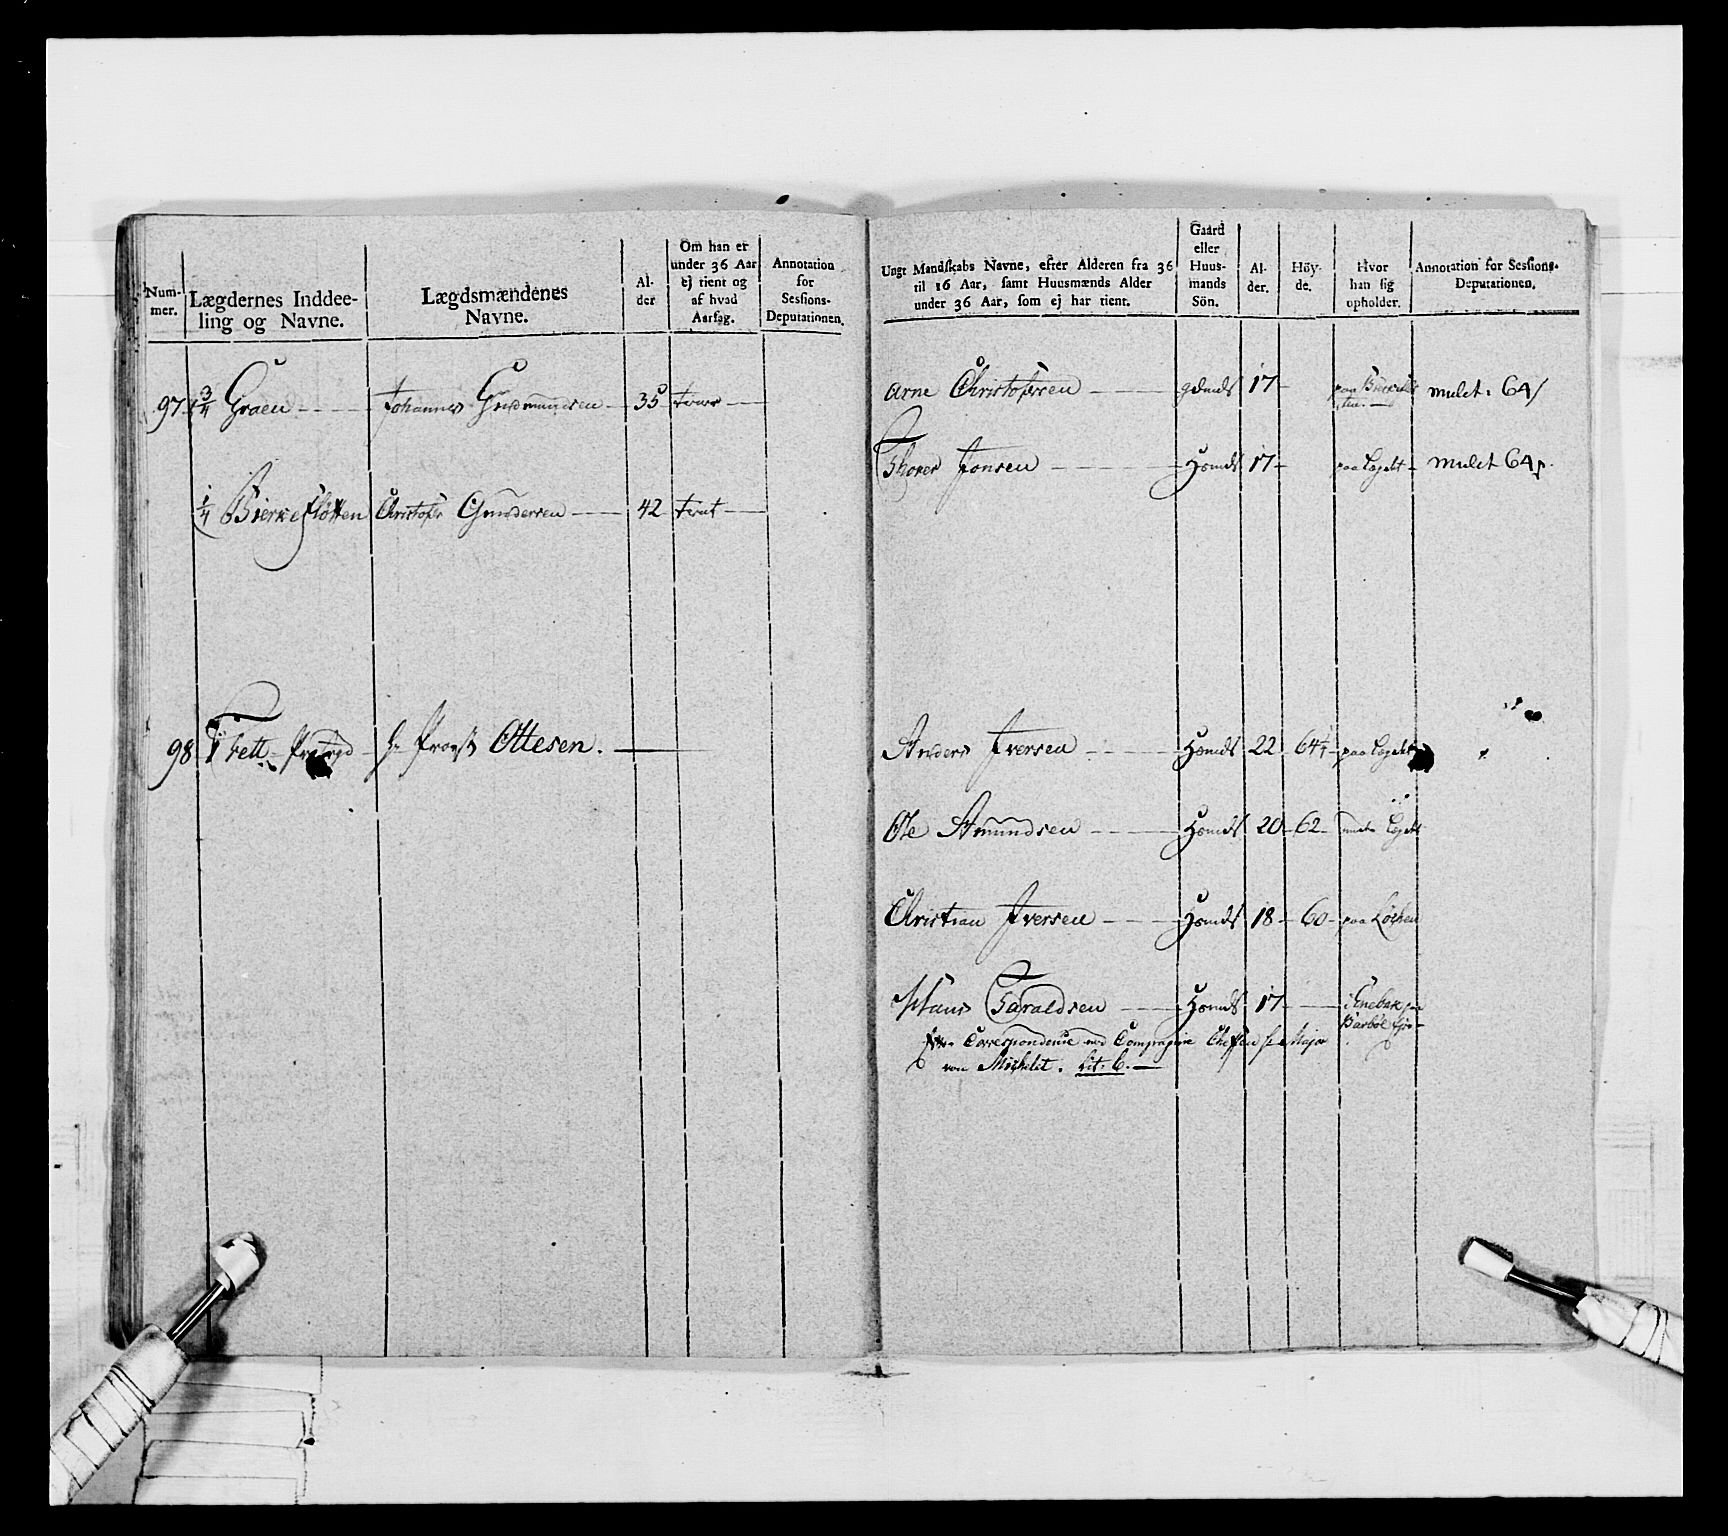 Num-
mer.
Lægdernes Inddee-
ling og Navne.
Lægdsmændenes
Navne.
Al-
der
Om han er
under 36 Aar
ej tient og
af hvad
Aarsag.
Annotation
for
Sessions-
Deputationen.
97 3/4 Graen Johannes Gudmundsen 35
1/4 Bierkesløtten Christofer Gundersen 42 tient
98 1 Fett Hr Provst Ottesen.
Ungt Mandskabs Navne, efter Alderen fra 36
til 16 Aar, samt Huusmænds Alder
under 36 Aar, som ej har tient.
Gaard
eller
Huus-
mands
Sön.
Al-
der.
Höy-
de.
Hvor
han sig
opholder.
Annotation for Sessions-
Deputationen.
Arne Christofersen 17 paa mulct. 64
Thorer Jonsen Hsmds 17 paa Legdet mulct 64
Anders Iversen Hsmds 22 64 paa Legdet
Ole Amundsen Hsmds 20 62 Legdet
Christian Iversen Hsmds 18 60 paa
Hans Haraldsen Hsmds 17 i Enebak
Correspondence med Compagnie Cheffen Hr Major
von Michelet. Lit. C.